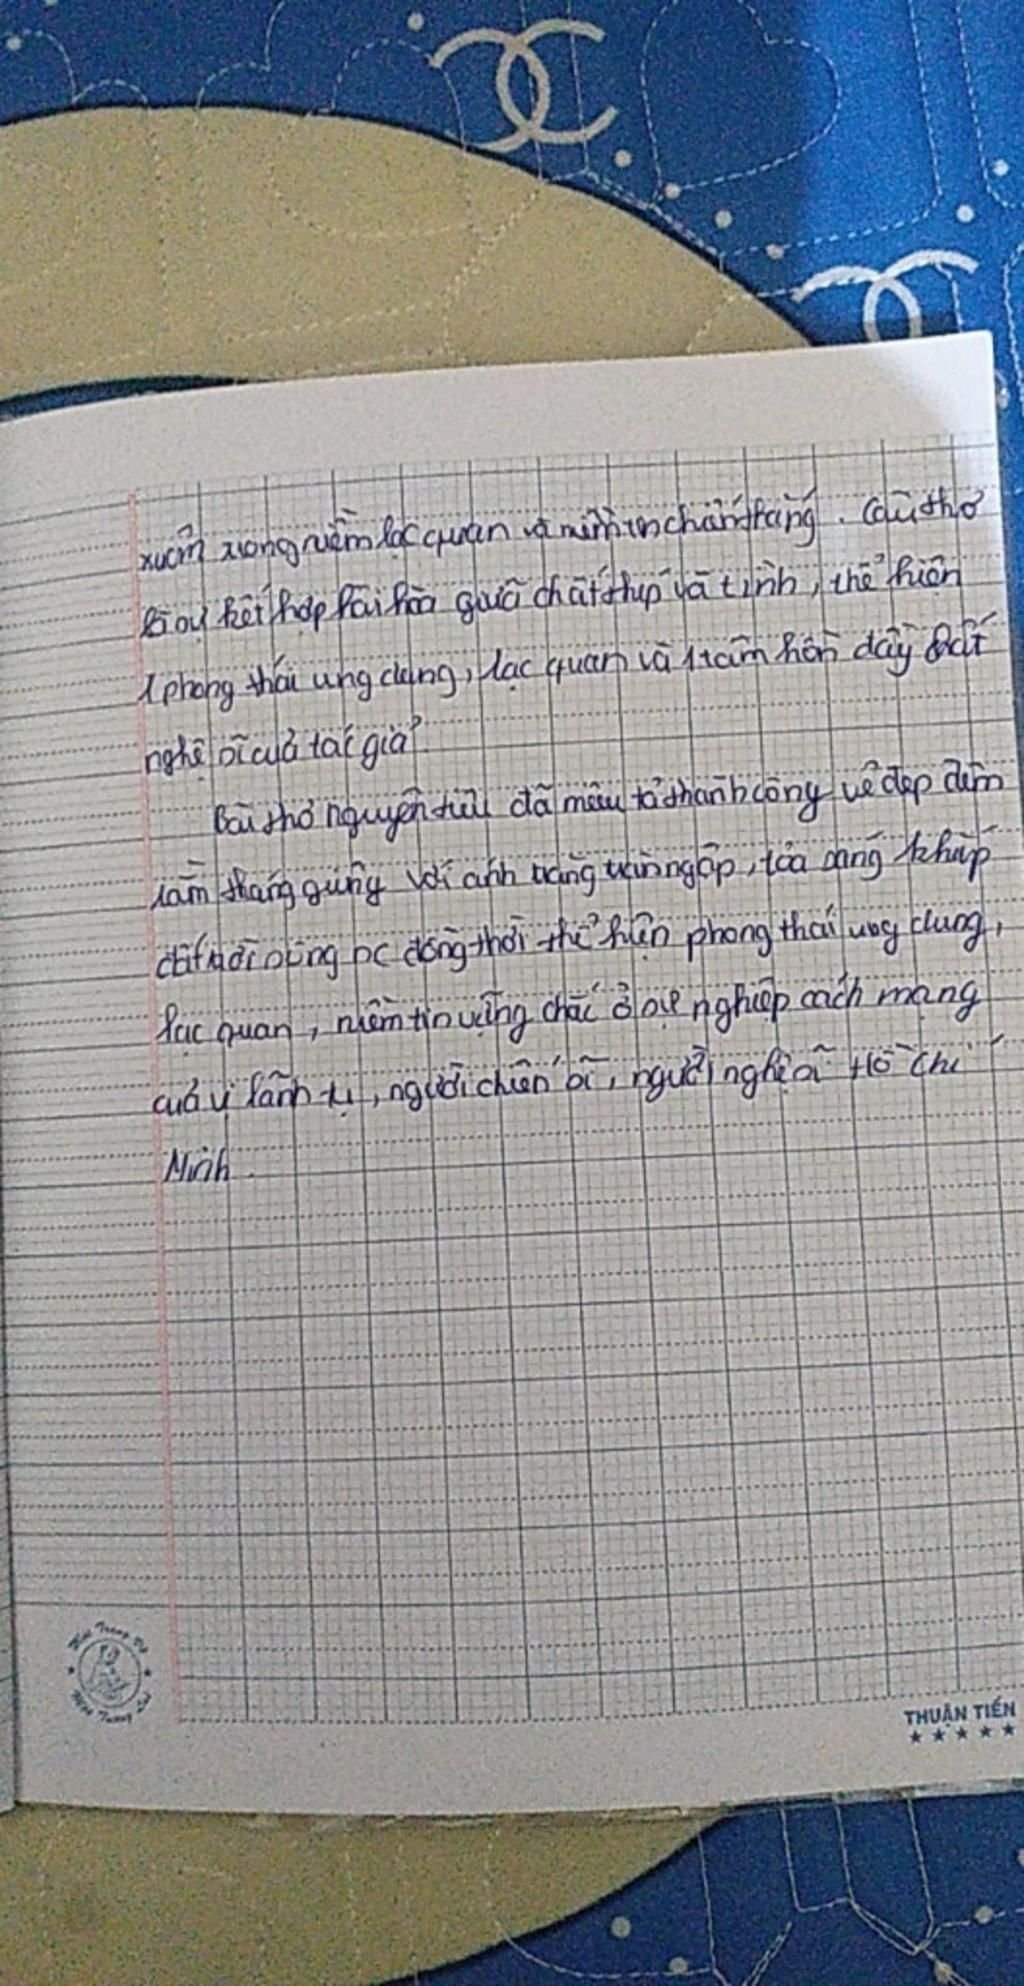 xuân trong niềm lạc quan và niềm tin chiến thắng. Câu thơ
là sự kết hợp hài hòa giữa chất thép và tình, thể hiện
1 phong thái ung dung, lạc quan và 1 tâm hồn dầy chất
nghệ sĩ cuả tác giả.
Bài thơ nguyên tiêu đã miêu tả thành công vẻ đẹp đêm
rằm tháng giêng với ánh trăng tràn ngập, tỏa sáng khắp
đất trời sông nc đồng thời thể hiện phong thái ung dung,
lạc quan, niềm tin vững chắc ở sự nghiệp cách mạng
cuả vị lãnh tụ, người chiến sĩ, người nghệ sĩ Hồ Chí
Minh.
THUẬN TIẾN